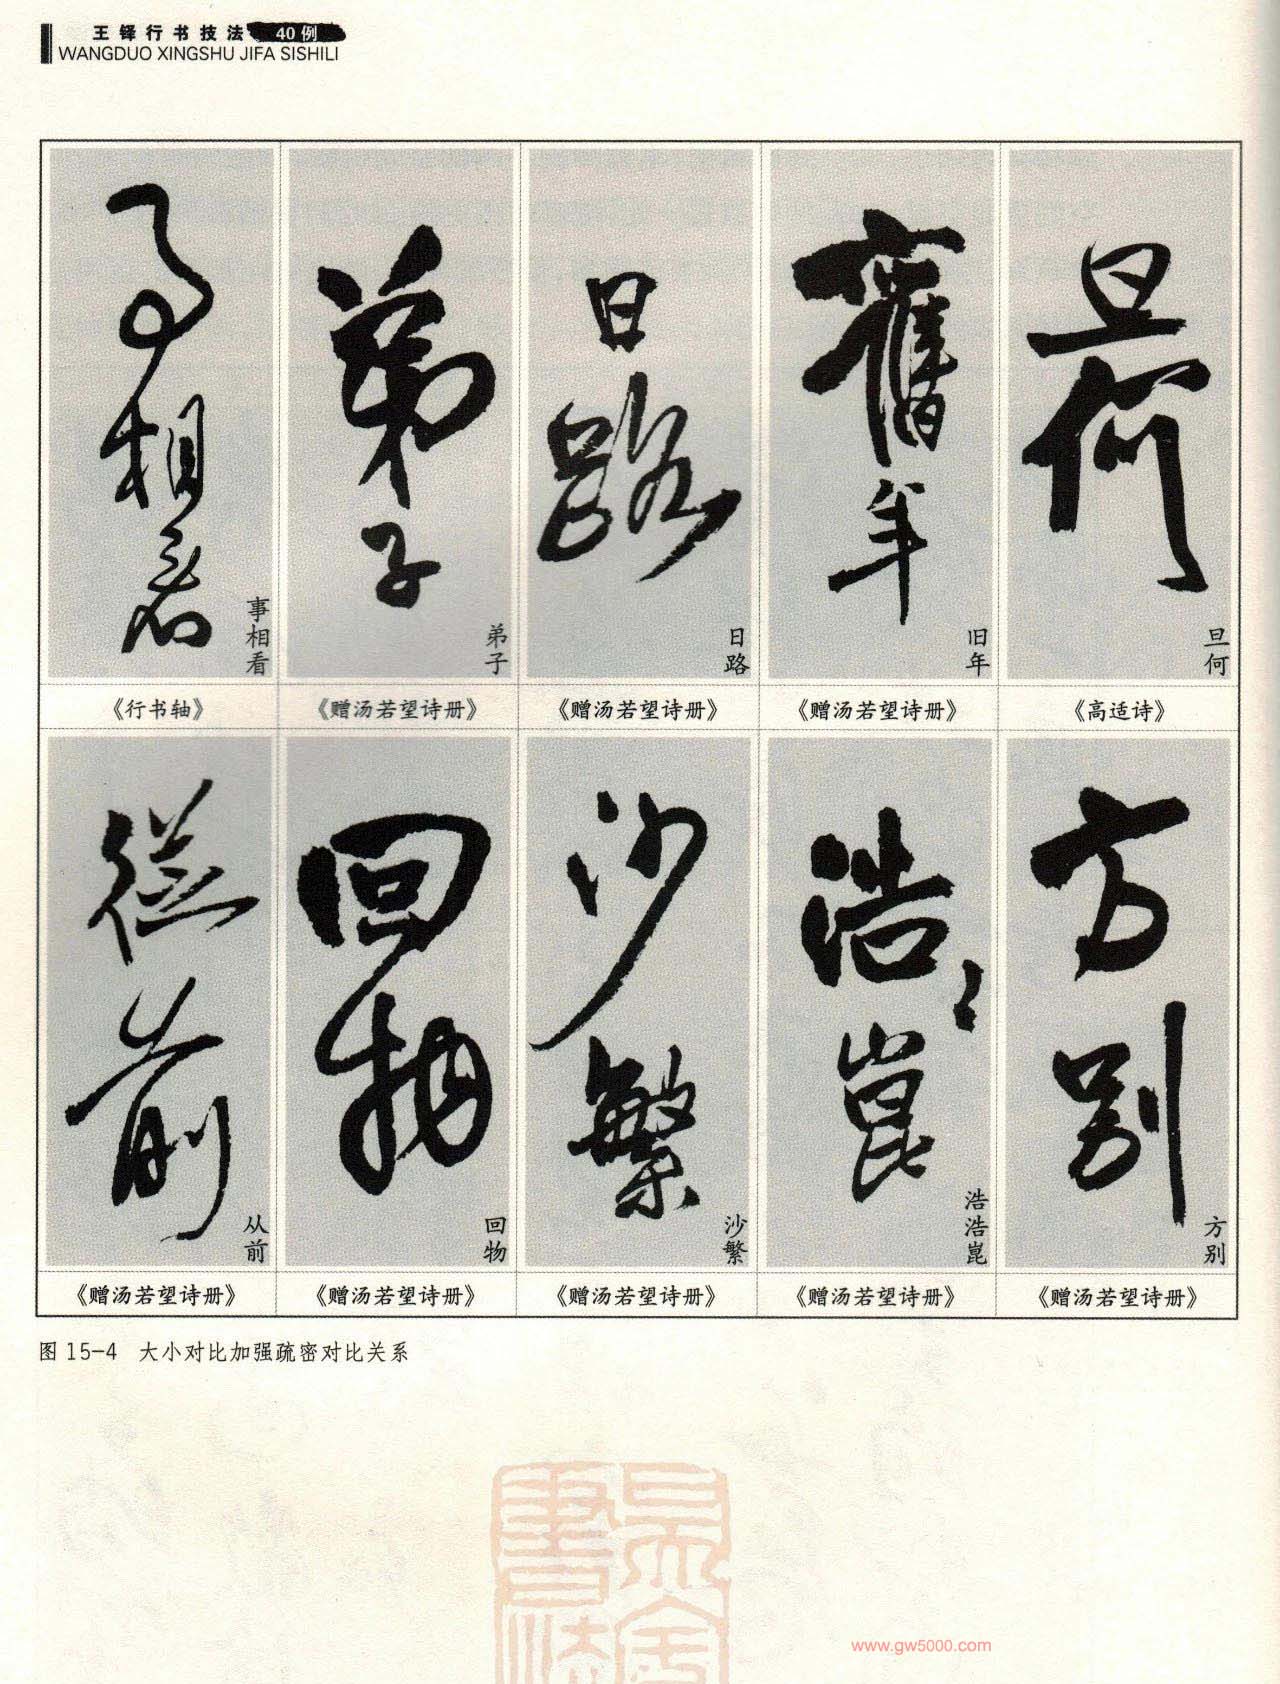 王铎行书技法 40例
WANGDUO XINGSHU JIFA SISHILI
事相看
弟子
日路
旧年
旦何
《行书轴》
《赠汤若望诗册》
《赠汤若望诗册》
《赠汤若望诗册》
《高适诗》
从前
回物
沙繁
浩浩崑
方别
《赠汤若望诗册》
《赠汤若望诗册》
《赠汤若望诗册》
《赠汤若望诗册》
《赠汤若望诗册》
图 15-4 大小对比加强疏密对比关系
www.gw5000.com